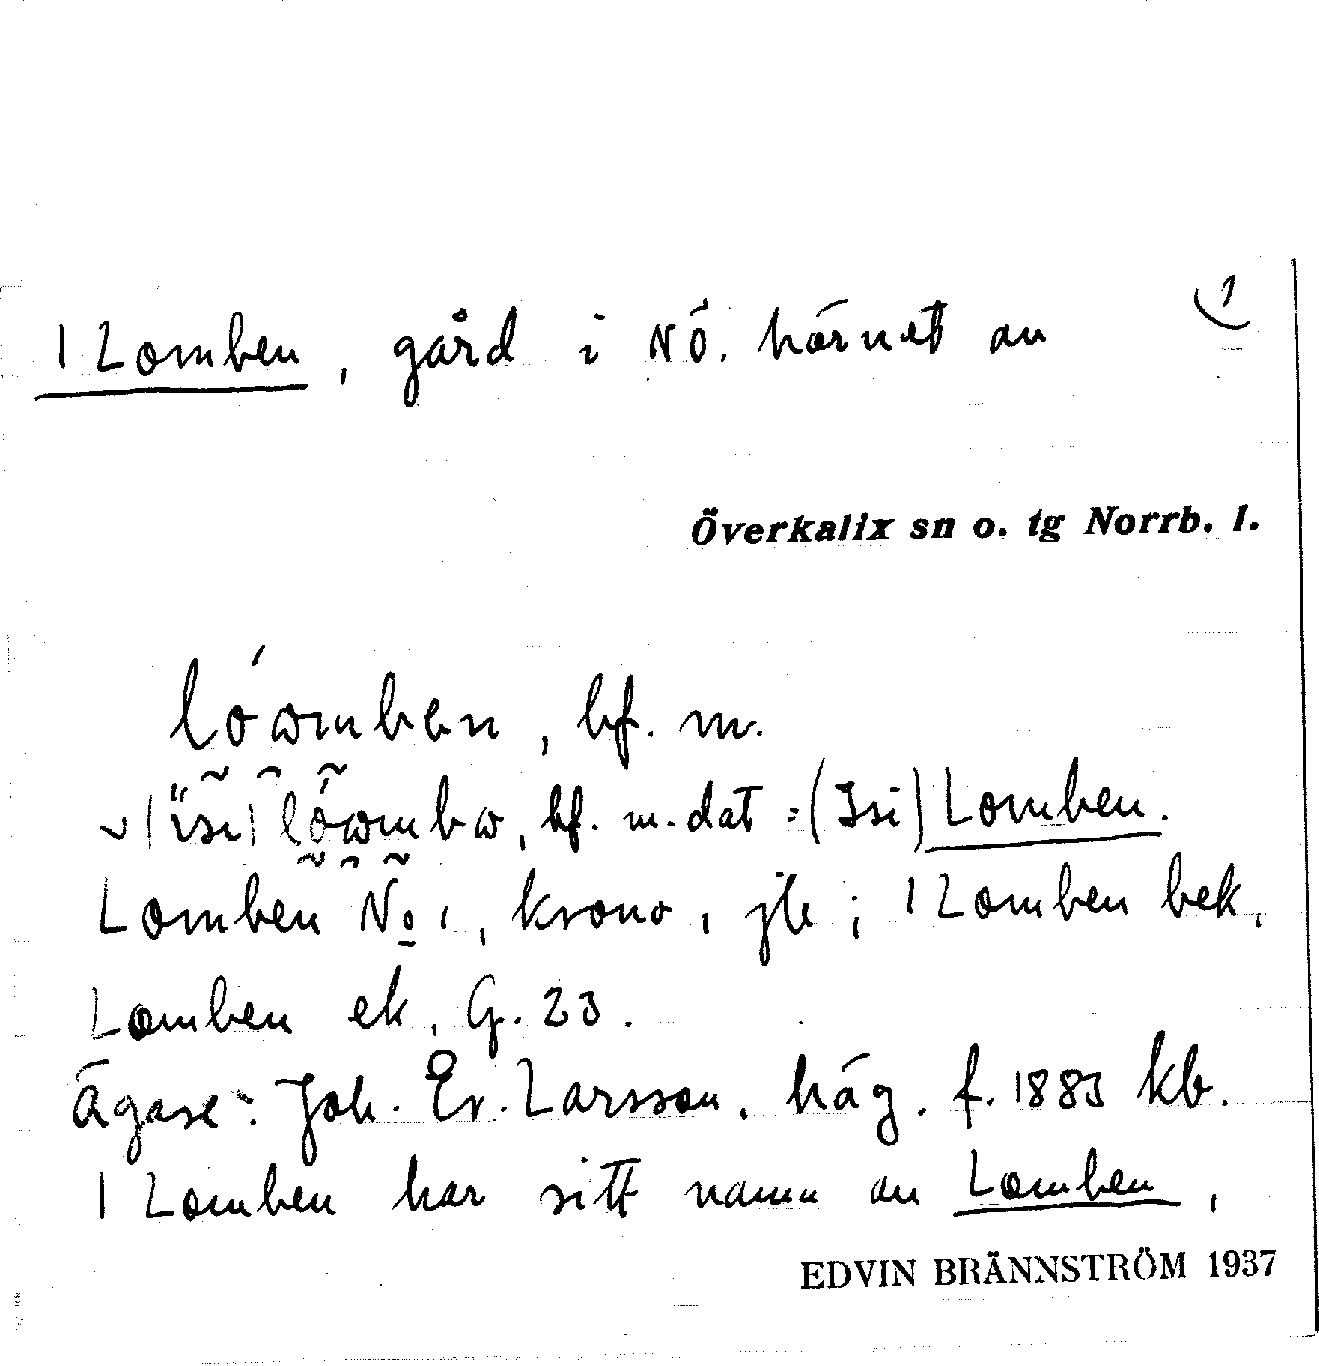 1 Lomben, gård i NÖ. hörnet av
1
Överkalix sn o. tg Norrb. l.
bf. m.
bf. m. dat = (Isi) Lomben.
Lomben No 1, krono, jb; 1 Lomben bek,
Lomben ek, G. 23.
Ägare: Joh. Ev. Larsson, häg. f. 1883 kb.
1 Lomben har sitt namn av Lomben,
EDVIN BRÄNNSTRÖM 1937